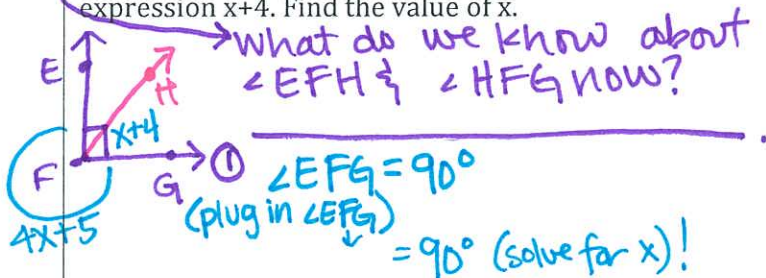 expression x+4. Find the value of x.
What do we know about
∠EFH & ∠HFG now?
E
H
x+4
F
G
4x+5
① ∠EFG = 90°
(plug in ∠EFG)
= 90° (solve for x)!